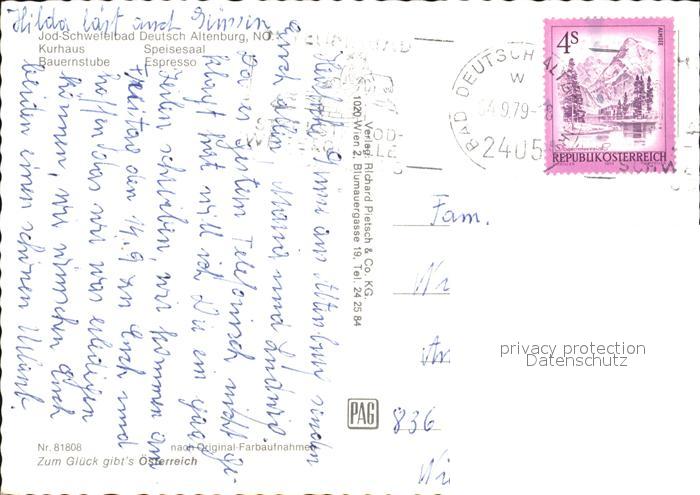 Hilda läst auch Grüssen
Jod-Schwefelbad Deutsch Altenburg, NÖ
Kurhaus Speisesaal
Bauernstube Espresso
Herzliche Grüsse aus Altenburg senden
Euch allen, Maria und Ludwig
Da es gestern Telefonisch nicht ge-
klappt hat will ich Dir ein paar
Zeilen schreiben, wir kommen am
Freitag den 14.9 zu Euch und
hoffen das wir was erledigen
können, wir wünschen Euch
beiden einen schönen Urlaub
Verlag Richard Pietsch & Co. KG.
1020 Wien 2, Blumauergasse 19, Tel. 24 25 84
BAD DEUTSCH ALTENBURG
W
04.9.79-8
2405
4S
ALMSEE
REPUBLIK ÖSTERREICH
Fam.
836
PAG
privacy protection
Datenschutz
Nr. 81808 nach Original-Farbaufnahmen
Zum Glück gibt's Österreich